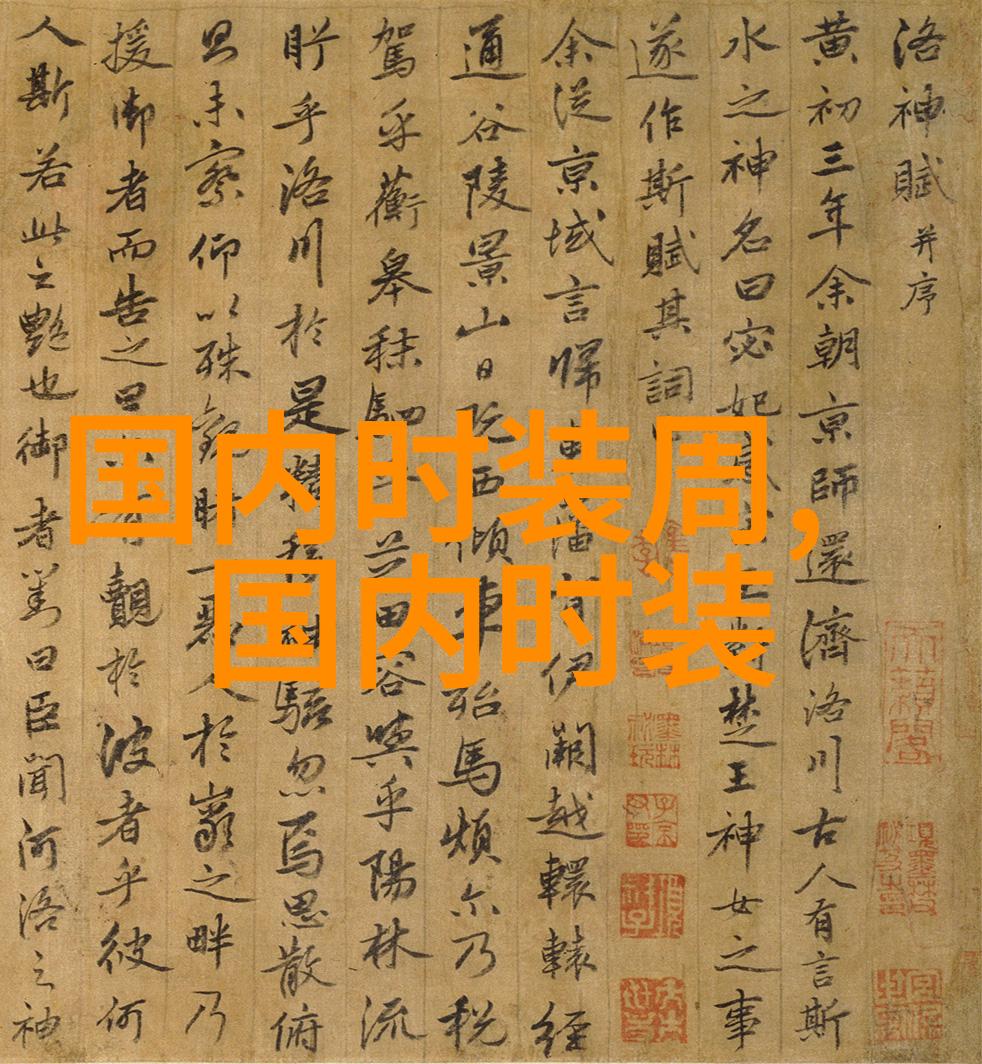 国内时装周,
国内时装
洛神賦并序
黄初三年余朝京師還濟洛川古人有言斯
水之神名曰宓妃楚王神女之事
遂作斯賦其詞
余從京域言歸伊闕越轘轅經
通谷陵景山日既西傾車殆馬煩尒乃稅
駕乎蘅皋秣駟芝田容與乎陽林流
眄乎洛川於是精移駭忽焉思散俯
則未察仰以殊觀睹一麗人於巖之畔乃
援御者而告之曰覿於彼者乎彼何
人斯若此之艷也御者對曰臣聞河洛之神